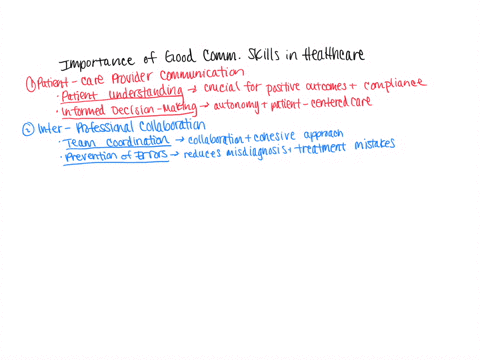 Importance of Good Comm. Skills in Healthcare
① Patient-care Provider Communication
· Patient understanding → crucial for positive outcomes + compliance
· Informed Decision-Making → autonomy + patient-centered care
② Inter-Professional Collaboration
· Team coordination → collaboration + cohesive approach
· Prevention of Errors → reduces misdiagnosis + treatment mistakes